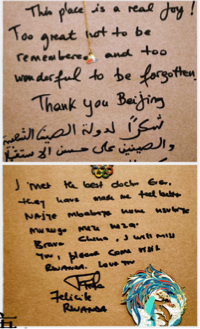 This place is a real Joy!
Too great not to be
remembered and too
wonderful to be forgotten.
Thank you Beijing
شكرًا لدولة الصين الشقيقة
والصينين على حسن الاستقبال
I met the best doctor Ever.
they have made me feel better
Murugo
Bravo China, I will miss
You, please come visit
Rwanda. Love you
Felicite
Rwanda